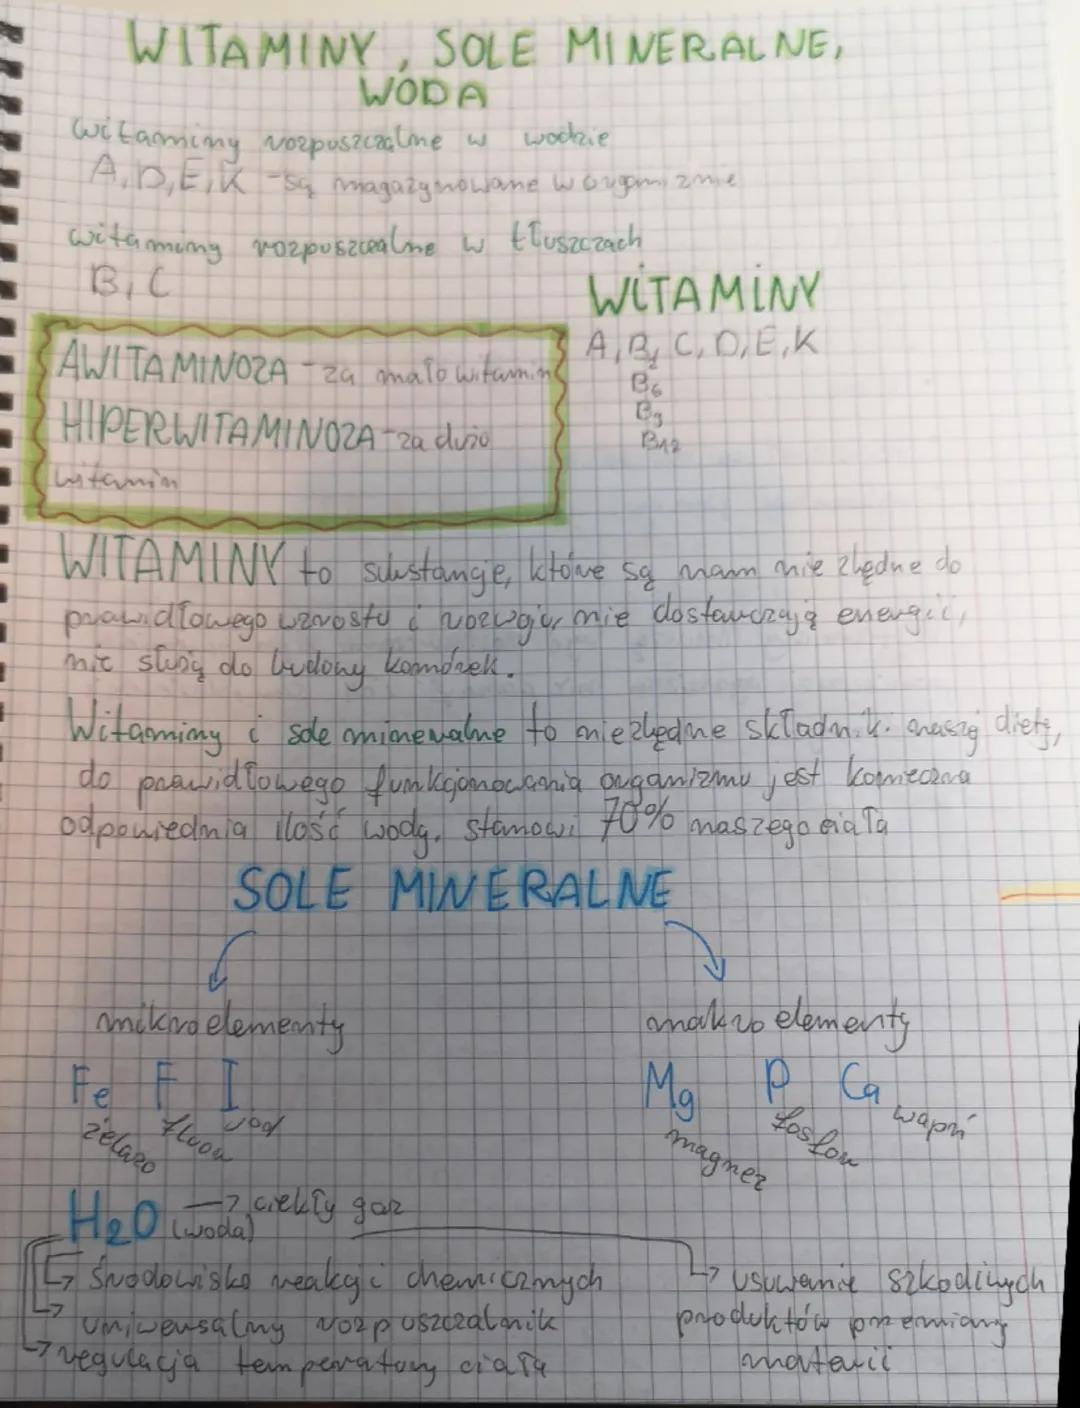 WITAMINY, SOLE MINERALNE,
WODA
witaminy rozpuszczalne w wodzie
A, D, E, K - są magazynowane w organizmie
witaminy rozpuszczalne w tłuszczach
B, C
WITAMINY
A, B₂, C, D, E, K
B₆
B₉
B₁₂
AWITAMINOZA - za mało witamin
HIPERWITAMINOZA - za dużo
witamin
WITAMINY to substancje, które są nam nie zbędne do
prawidłowego wzrostu i rozwoju, nie dostarczają energii,
nie służą do budowy komórek.
Witaminy i sole mineralne to niezbędne składniki naszej diety,
do prawidłowego funkcjonowania organizmu jest konieczna
odpowiednia ilość wody. stanowi 70% naszego ciała
SOLE MINERALNE
mikroelementy
makroelementy
Fe F I
Mg P Ca
żelazo fluor jod
magnez fosfor wapń
H₂O (woda) → ciekły gaz
→ środowisko reakcji chemicznych
→ uniwersalny rozpuszczalnik
→ regulacja temperatury ciała
→ usuwanie szkodliwych
produktów przemiany
materii